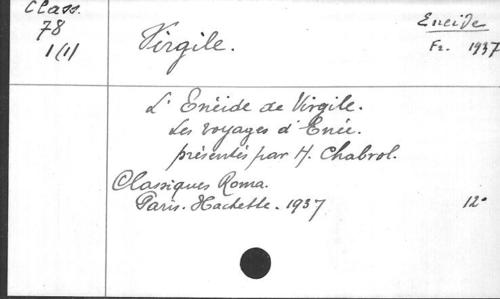 Class.
78
1(1)
Virgile.
Enéide
Fr. 1937
L'Enéide de Virgile.
Les voyages d'Enée.
présentés par H. Chabrol.
Classiques Roma.
Paris. Hachette. 1937
12°